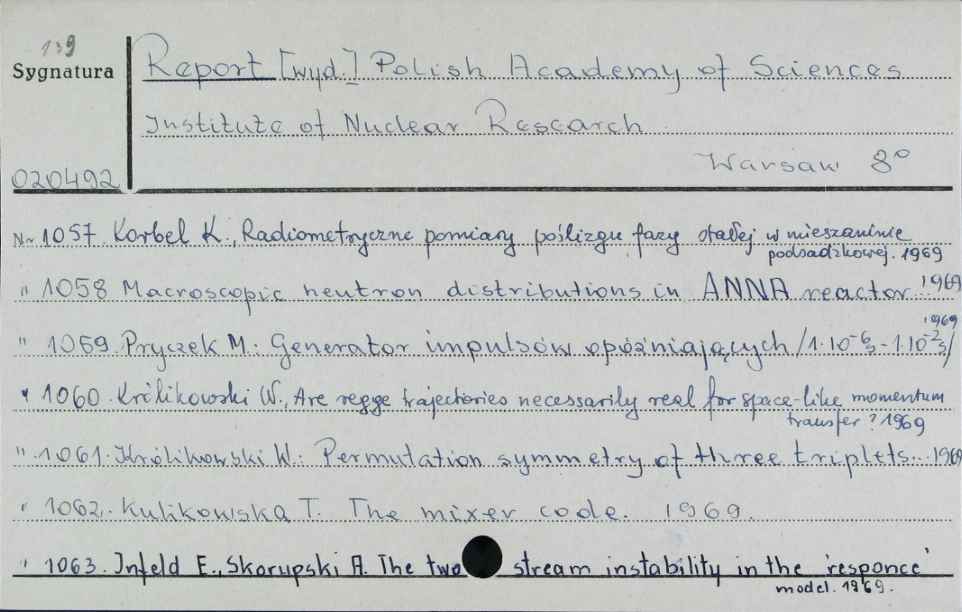 139
Sygnatura
Report [wyd.] Polish Academy of Sciences
Institute of Nuclear Research
Warsaw 8°
020492
Nr 1057. Korbel K., Radiometryczne pomiary poślizgu fazy stałej w mieszaninie
podsadzkowej. 1969
" 1058 Macroscopic neutron distributions in ANNA reactor 1969
" 1059. Pryczek M.: Generator impulsów opóźniających /1·10⁻⁶s - 1·10⁻²s/ 1969
" 1060. Królikowski W., Are regge trajectories necessarily real for space-like momentum
transfer? 1969
" 1061. Królikowski W.: Permutation symmetry of three triplets. 1969
" 1062. Kulikowska T. The mixer code. 1969.
" 1063. Infeld E., Skorupski A. The two stream instability in the 'responce'
model. 1969.